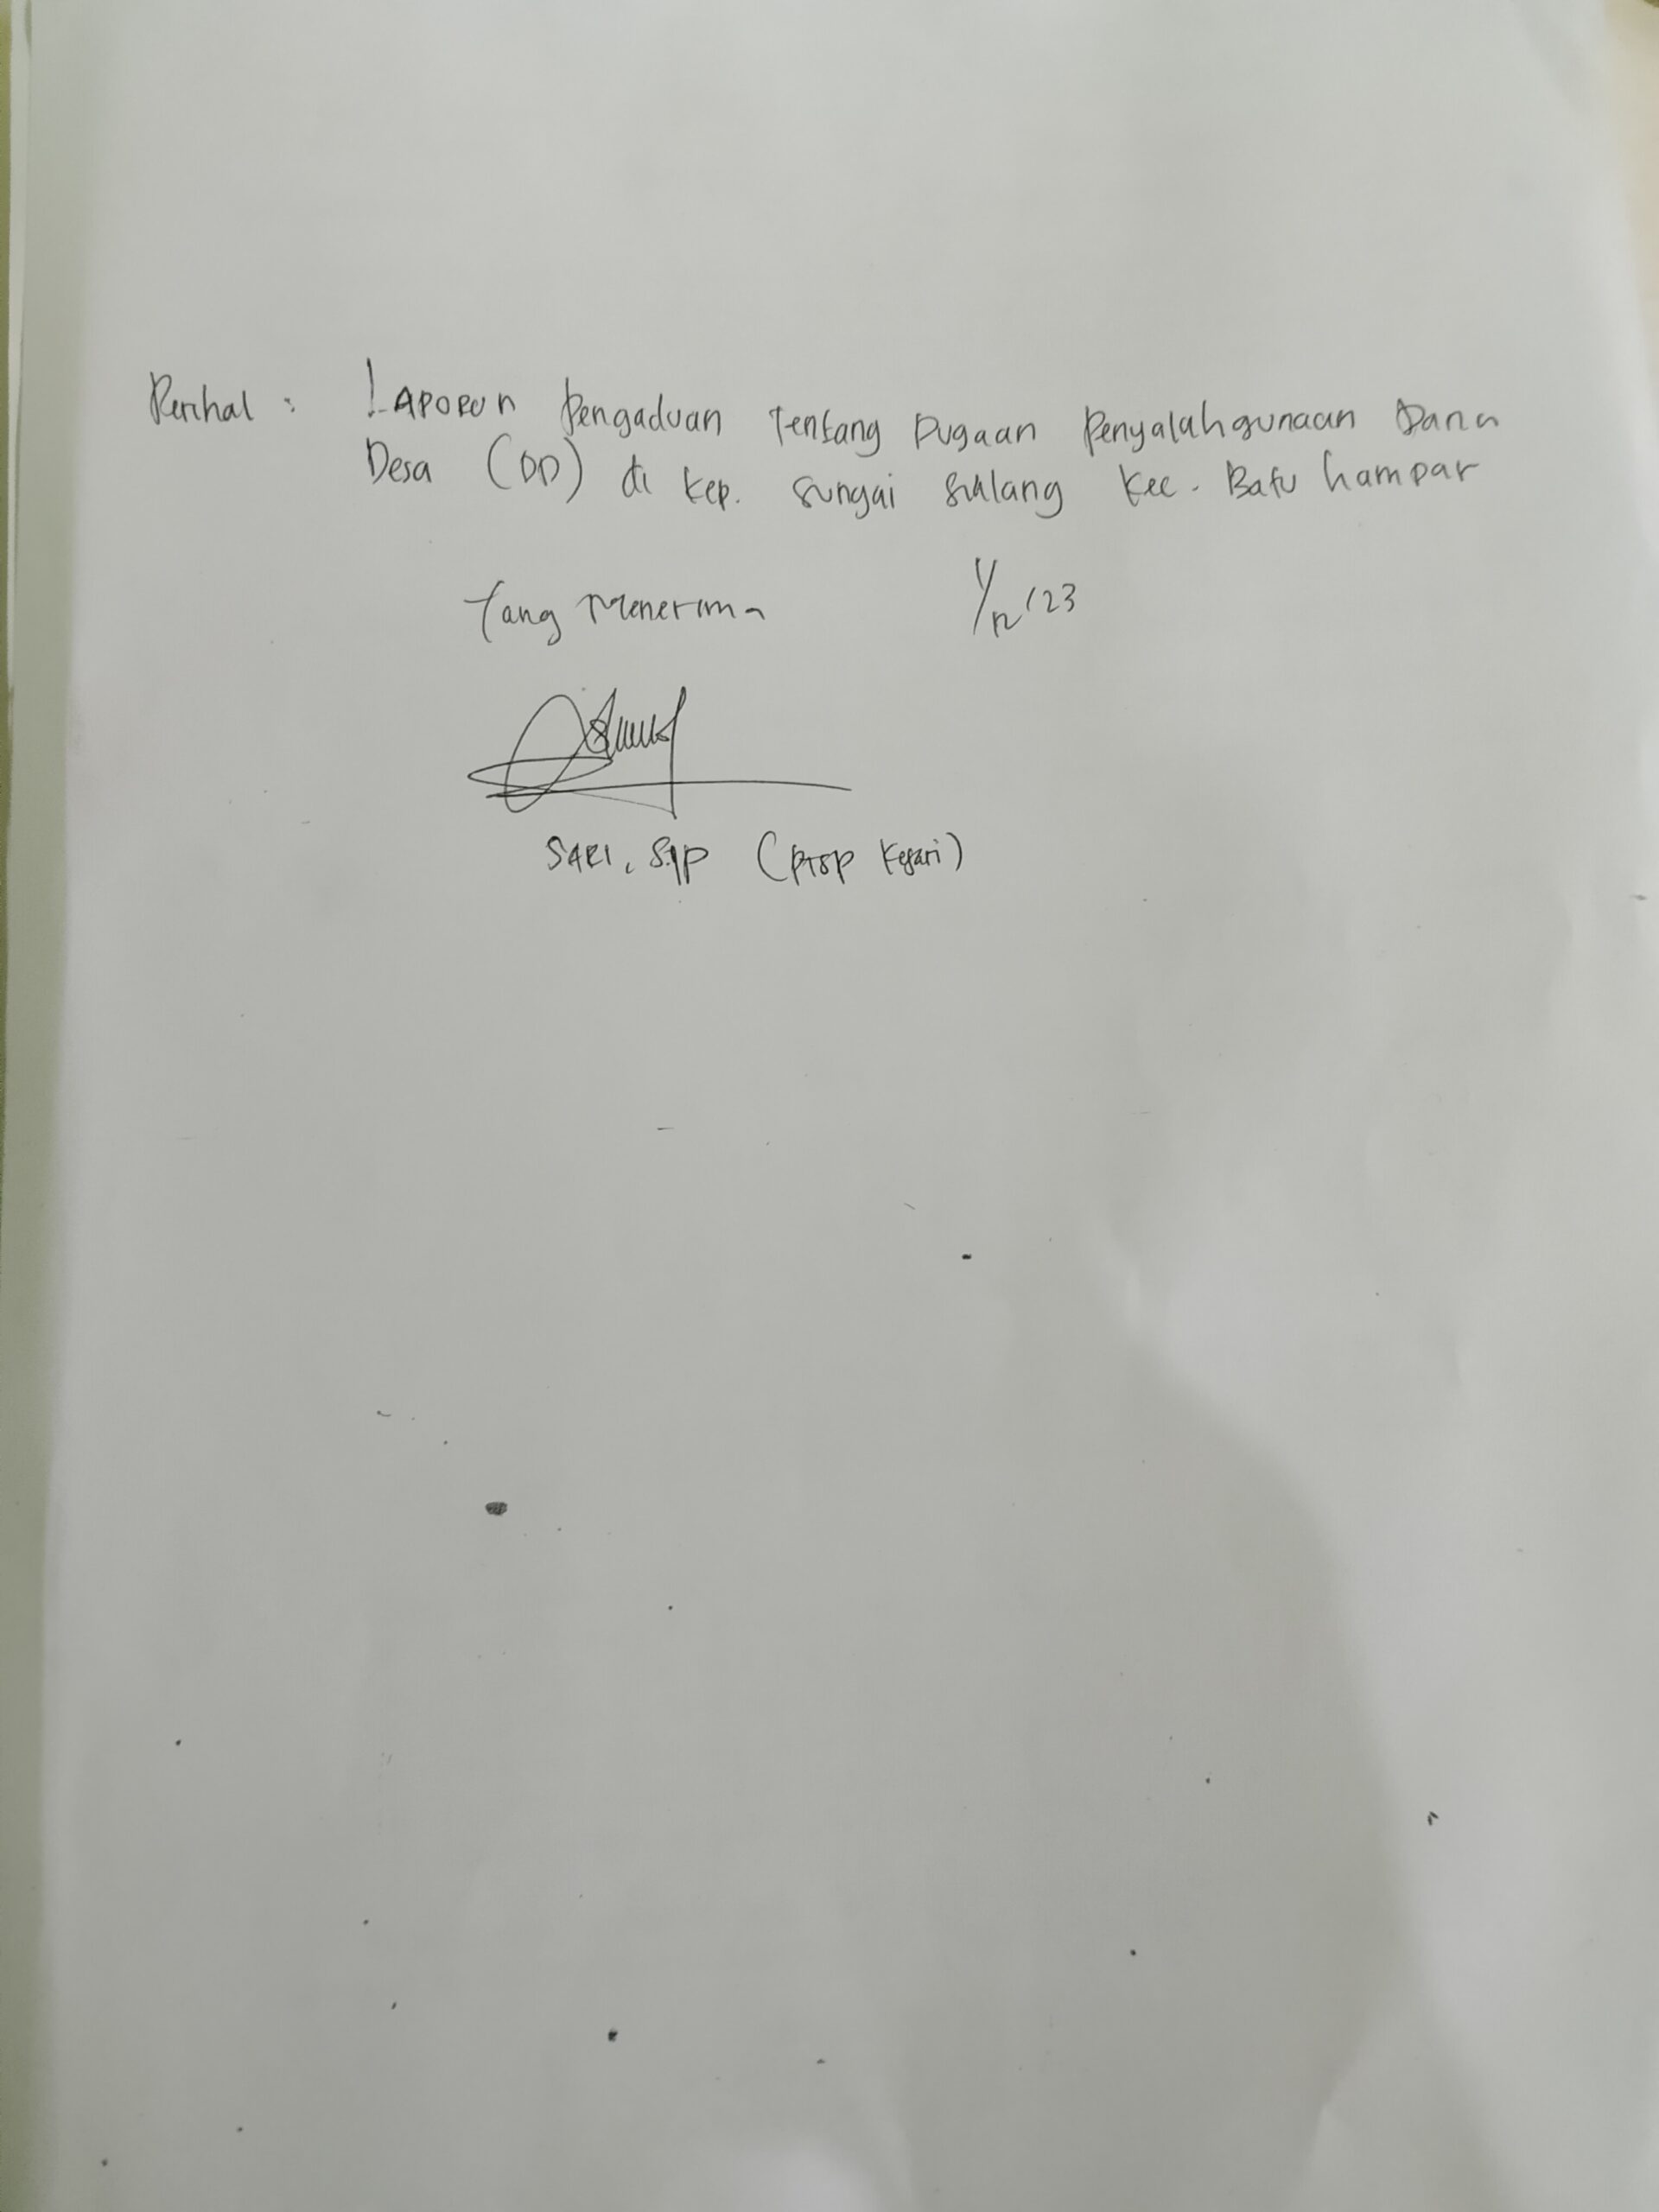 Perihal : Laporan Pengaduan Tentang Dugaan Penyalahgunaan Dana
Desa (DD) di Kep. Sungai Sialang Kec. Batu hampar
Yang Menerima 1/12/23
SARI, S.IP (PTSP Kejari)